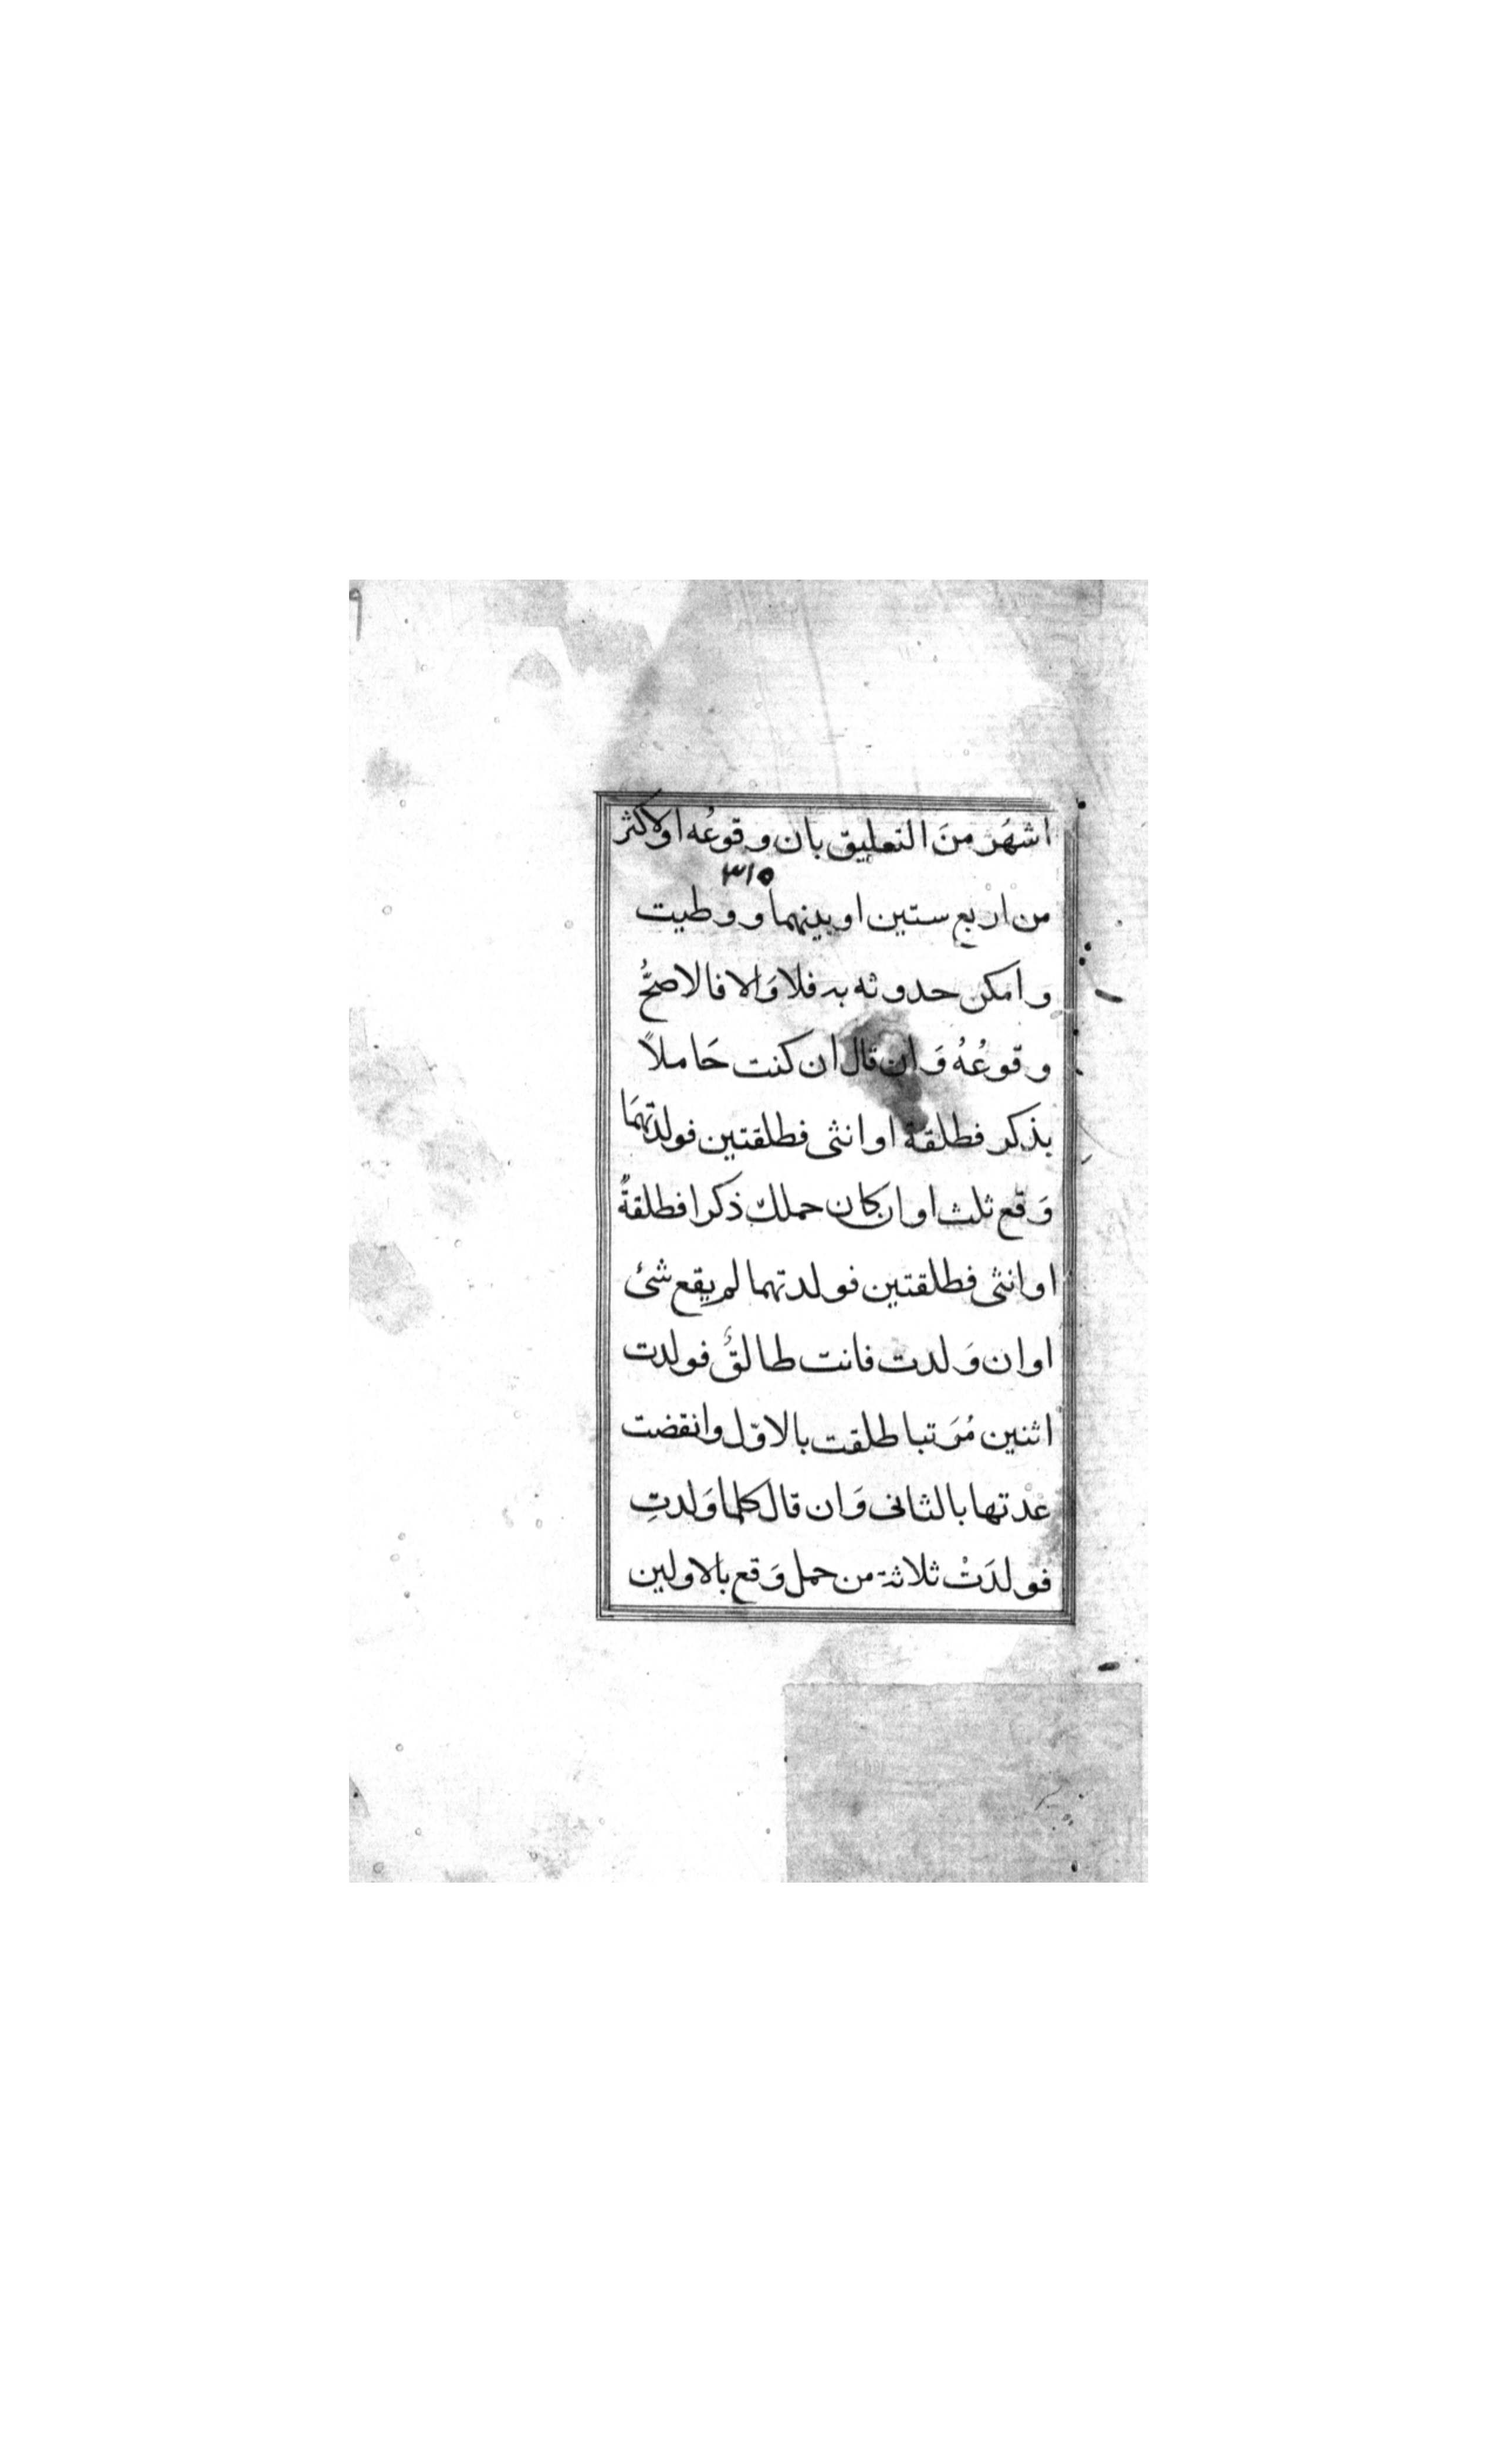 اشهَر منَ التعليق بان وقوعُه اولاكثر
٣١٥
من اربع سنّين او بينهما ووطيت
وامكن حدوثه به فلا وَالا فالاصحُّ
وقوعُهُ وَان قال ان كنت حَاملاً
بذكر فطلقة او انثى فطلقتين فولدتهمَا
وَقع ثلث او ان كان حملك ذكرا فطلقةً
او انثى فطلقتين فولدتهما لم يقع شئ
او ان وَلدت فانت طالقٌ فولدت
اثنين مُرَتبا طلقت بالاوّل وانقضت
عدتها بالثانى وَان قال كلما وَلدتِ
فولدَتْ ثلاثة من حمل وَقع بالاولين